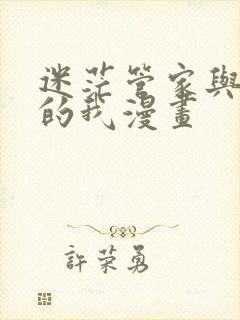 迷茫管家與
的我漫畫
許荣勇